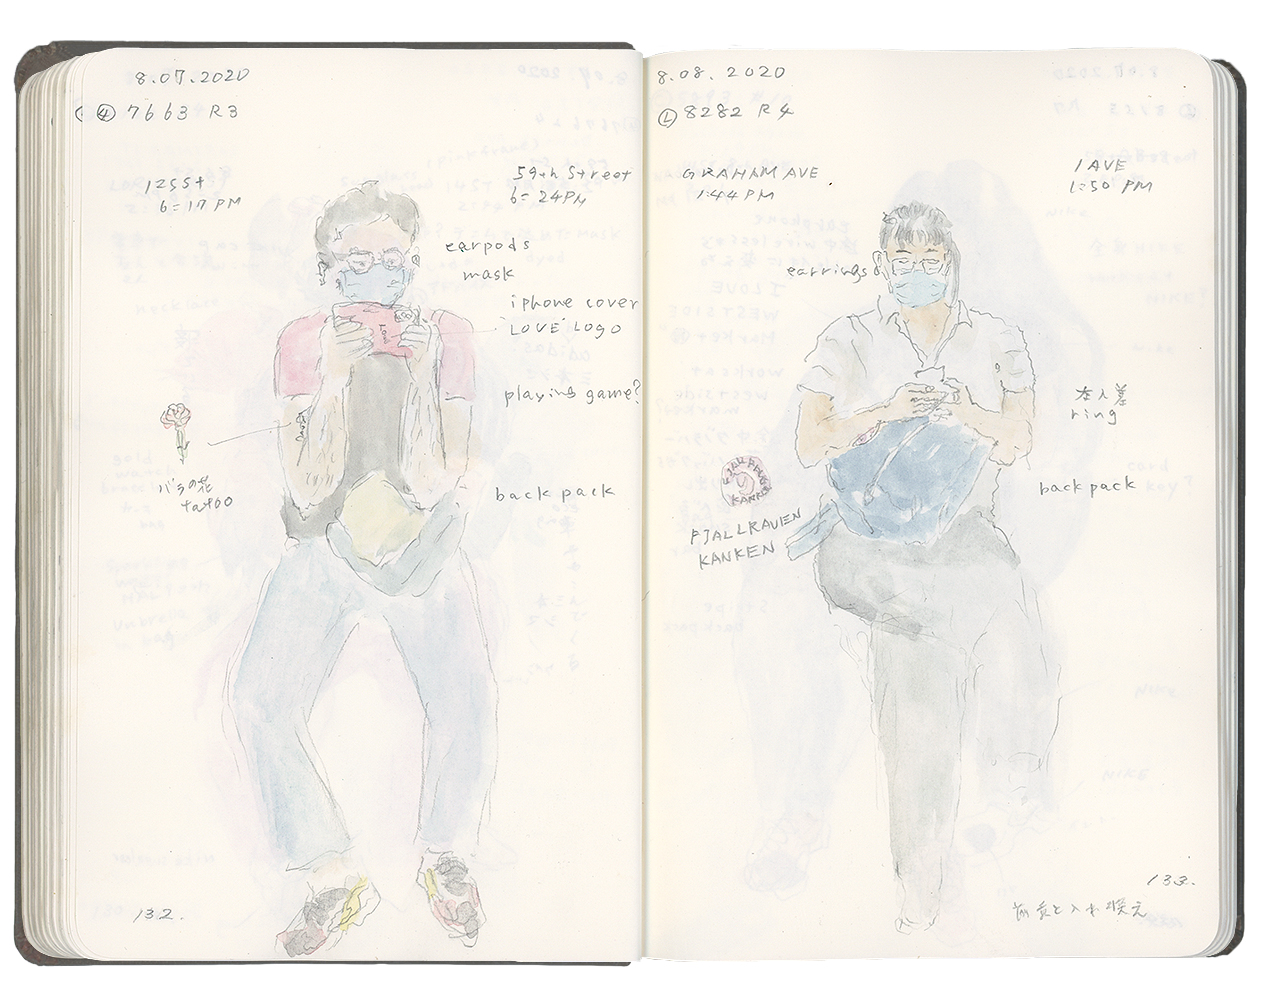 8.07.2020
④ 7663 R3
125St
6:17PM
59th Street
6:24PM
earpods
mask
iphone cover
"LOVE" LOGO
playing game?
バラの花
tattoo
back pack
132.
8.08.2020
Ⓛ 8282 R4
GRAHAM AVE
1:44PM
1 AVE
1:50 PM
earrings
ring
FJALLRAVEN
KANKEN
FJALLRAVEN
KANKEN
back pack
133.